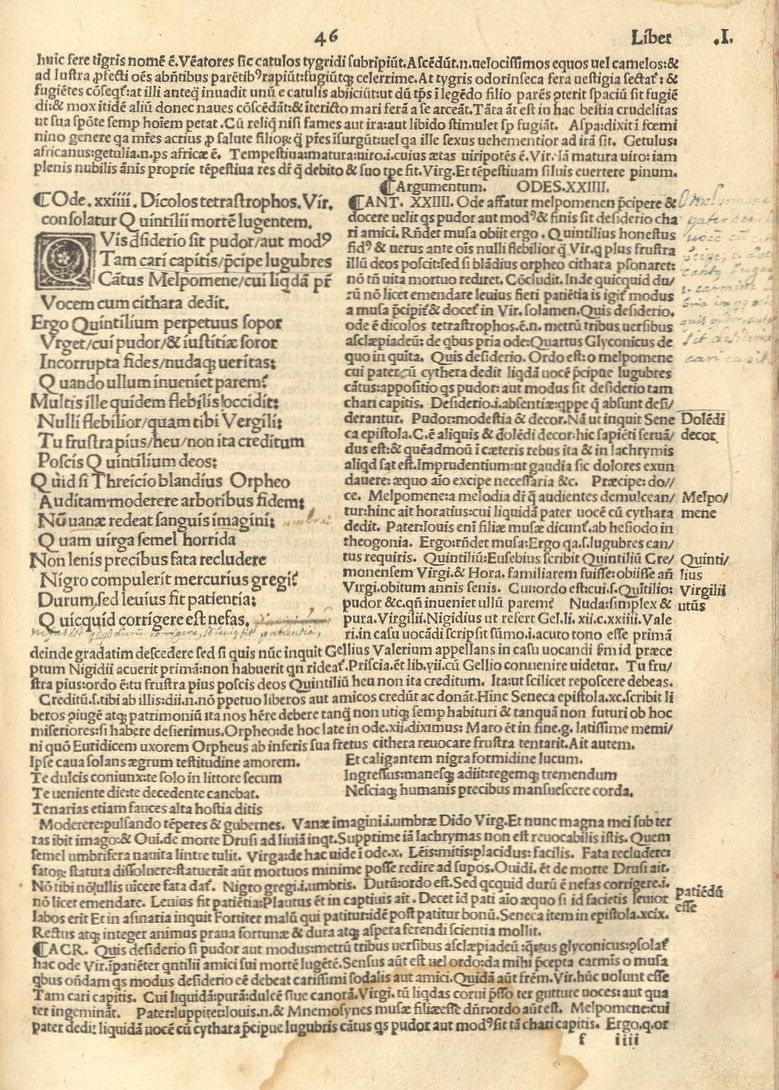 46
Liber .I.
huic fere tigris nomē ē. Vēatores sic catulos tygridi subripiūt. Ascēdūt.n.uelocissimos equos uel camelos:&
ad lustra ꝓfecti oēs abñtibus parētibꝰ rapiūt:fugiūtqꝫ celerrime. At tygris odorinseca fera uestigia sectaꝭ: &
fugiētes cōseqꝭ:at illi anteqꝫ inuadit unū e catulis abiiciūt:ut dū tp̄s ī legēdo filio parēs ꝓterit spaciū sit fugiē
di:& mox itidē aliū donec naues cōscēdāt:& itericto mari ferā a se arceāt. Tāta āt est in hac bestia crudelitas
ut sua spōte semp hoīem petat. Cū reliqꝫ nisi fames aut ira:aut libido stimulet sp fugiāt. Aspa:dixit ī fœmi
nino genere qa mr̄es acrius ꝓ salute filioꝝ: q̄ pr̄es īsurgūt:uel qa ille sexus uehementior ad irā sit. Getulus:
africanus:getulia.n.ps africæ ē. Tempestiua:matura:uiro:i.cuius ætas uiripotēs ē. Vir. Iā matura uiro:iam
plenis nubilis ānis proprie tēpestiua res dr̄ q̄ debito & suo tp̄e fit. Virg. Et tēpestiuam siluis euertere pinum.
¶Argumentum. ODES.XXIIII.
¶Ode. xxiiii. Dicolos tetrastrophos. Vir.
consolatur Quintilii mortē lugentem.
QVis dsiderio sit pudor/aut modꝰ
Tam cari capitis/p̄cipe lugubres
Cātus Melpomene/cui liqdā pr̄
Vocem cum cithara dedit.
Ergo Quintilium perpetuus sopor
Vrget/cui pudor/& iustitiæ soror
Incorrupta fides/nudaqꝫ ueritas:
Quando ullum inueniet parem?
Multis ille quidem flebilis occidit:
Nulli flebilior/quam tibi Vergili:
Tu frustra pius/heu/non ita creditum
Poscis Quintilium deos:
Qđ si Threicio blandius Orpheo
Auditam moderere arboribus fidem:
Nō uanæ redeat sanguis imagini: umbræ
Quam uirga semel horrida
Non lenis precibus fata recludere
Nigro compulerit mercurius gregi?
Durum,sed leuius fit patientia:
Quicquid corrigere est nefas.
¶CANT. XXIIII. Ode affatur melpomenen p̄cipere &
docere uelit qs pudor aut modꝰ & finis sit desiderio cha
ri amici. Rñdet musa obiit ergo. Quintilius honestus
fidꝰ & uerus ante oīs nulli flebilior q̄ Vir.q plus frustra
illū deos poscit:sed si blādius orpheo cithara psonaret:
nō tñ uita mortuo rediret. Cōcludit. Inde quicquid du/
rū nō licet emendare leuius fieri patiētia is igiꝭ modus
a musa p̄cipiꝭ & doceꝭ in Vir. solamen. Quis desiderio.
ode ē dicolos tetrastrophos.ē.n. metrū tribus uersibus
asclæpiadeū: de qbus pria ode:Quartus Glyconicus de
quo in quita. Quis desiderio. Ordo est: o melpomene
cui pater cū cythera dedit liqdā uocē p̄cipue lugubres
cātus:appositio qs pudor: aut modus sit desiderio tam
chari capitis. Desiderio.i.absentiæ:qppe q̄ absunt desi/
derantur. Pudor:modestia & decor. Nā ut inquit Sene
ca epistola. C.ē aliquis & dolēdi decor:hic sapiēti seruā/
dus est:& quēadmoū i cæteris rebus ita & in lachrymis
aliqd sat est. Imprudentium:ut gaudia sic dolores exun
dauere: æquo aīo excipe necessaria &c. Præcipe: do//
ce. Melpomene:a melodia dī q̄ audientes demulcean/
tur:hinc ait horatius:cui liquidā pater uocē cū cythara
dedit. Pater:Iouis enī filiæ musæ dicunꝭ. ab hesiodo in
theogonia. Ergo:rñdet musa:Ergo qa.s.lugubres can/
tus requiris. Quintiliū:Eusebius scribit Quintiliū Cre/
monensem Virgi.& Hora. familiarem fuisse: obiisse añ
Virgi.obitum annis senis. Cui:ordo est:cui.s. Quitilio:
pudor &c.qñ inueniet ullū parem? Nuda:simplex &
pura. Virgilii. Nigidius ut refert Gel.li.xii.c.xxiiii. Vale
ri.in casu uocādi scripsit sūmo.i.acuto tono esse primā
Dolēdi
decor.
Melpo/
mene
Quinti/
lius
Virgilii
utūs
deinde gradatim descēdere sed si quis nūc inquit Gellius Valerium appellans in casu uocandi ẜm id præce
ptum Nigidii acuerit primā:non habuerit qn rideaꝭ. Priscia.ēt lib.vii.cū Gellio conuenire uidetur. Tu fru/
stra pius:ordo ē:tu frustra pius poscis deos Quintiliū heu non ita creditum. Ita:ut scilicet reposcere debeas.
Creditū.s.tibi ab illis:dii.n.nō ppetuo liberos aut amicos credūt ac donāt. Hinc Seneca epistola.xc.scribit li
beros ꝓiugē atqꝫ patrimoniū ita nos hēre debere tanqꝫ non utiqꝫ semp habituri & tanquā non futuri ob hoc
miseriores:si habere desierimus. Orpheo:de hoc late in ode.xii.diximus: Maro ēt in fine.g. latissime memi/
ni quo Euridicem uxorem Orpheus ab inferis sua fretus cithera reuocare frustra tentarit. Ait autem.
Ipse caua solans ægrum testitudine amorem.
Te dulcis coniunx:te solo in littore secum
Te ueniente die:te decedente canebat.
Tenarias etiam fauces alta hostia ditis
Et caligantem nigra formidine lucum.
Ingressus:manesqꝫ adiit:regemqꝫ tremendum
Nesciaqꝫ humanis precibus mansuescere corda.
Moderere:pulsando tēperes & gubernes. Vanæ imagini.i.umbræ Dido Virg. Et nunc magna mei sub ter
ras ibit imago:& Oui.de morte Drusi ad liuiā inqt. Supprime iā lachrymas non est reuocabilis istis. Quem
semel umbrifera nauita lintre tulit. Virga:de hac uide i ode.x. Lēis:mitis:placidus: facilis. Fata recludere:
fatoꝝ statuta dissoluere:statuerāt aūt mortuos minime posse redire ad supos. Ouidi. ēt de morte Drusi ait.
Nō tibi nōnullis uicere fata daꝭ. Nigro gregi.i.umbris. Durū:ordo est. Sed qcquid durū ē nefas corrigere.i.
nō licet emendare. Leuius fit patiētia:Plautus ēt in captiuis ait. Decet id pati aīo æquo si id facietis leuior
labos erit Et in asinaria inquit Fortiter malū qui patitur:idē post patitur bonū. Seneca item in epistola.xcix.
Rectus atqꝫ integer animus praua fortunæ & dura atqꝫ aspera ferendi scientia mollit.
patiēdū
esse
¶ACR. Quis desiderio si pudor aut modus:metrū tribus uersibus asclæpiadeū:qrtus glyconicus:ꝓsolaꝭ
hac ode Vir.īpatiēter qntilii amici sui mortē lugētē. Sensus aūt est uel ordo:da mihi p̄cepta carmīs o musa
qbus oñdam qs modus desiderio eē debeat carissimi sodalis aut amici. Quidā aūt frēm. Vir.hūc uolunt esse
Tam cari capitis. Cui liquidā:purā:dulcē siue canorā. Virgi.tū liqdas corui p̄sso ter gutture uoces:aut qua
ter ingemināt. Pater:Iuppiter:Iouis.n.& Mnemosynes musæ filiæ esse dñr:ordo aūt est. Melpomene:cui
pater dedit liquidā uocē cū cythara p̄cipue lugubris cātus qs pudor aut modꝰ sit tā chari capitis. Ergo.q.or
f iiii